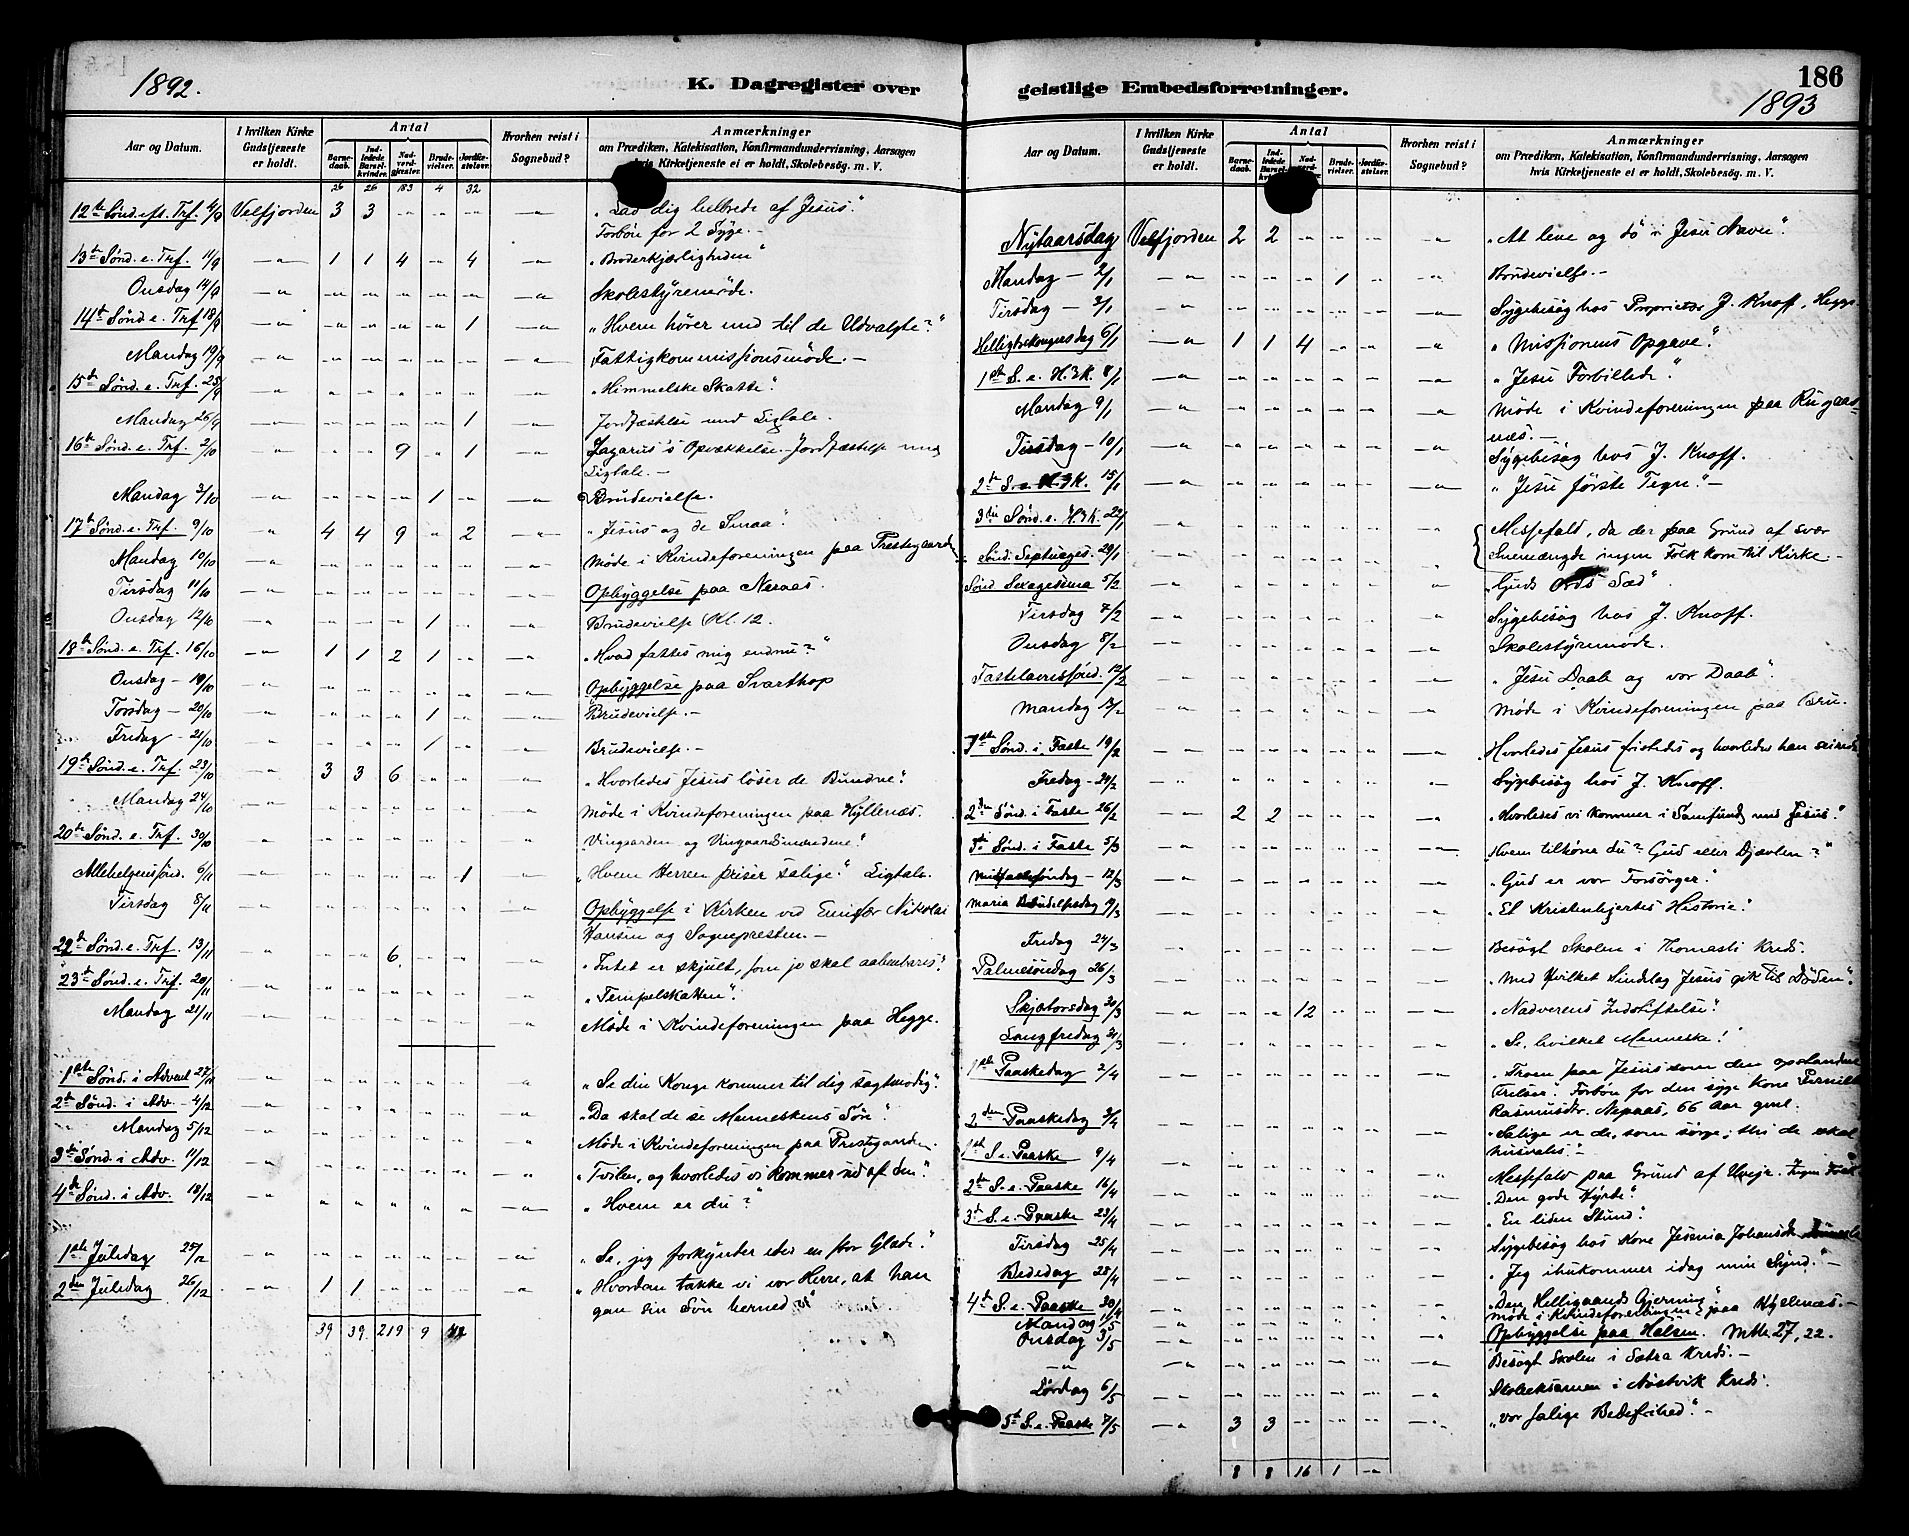 1892.
K. Dagregister over
Aar og Datum. | I hvilken Kirke Gudstjeneste er holdt. | Antal | Barnedaab. | Indledede Barselkvinder. | Nadverdgjester. | Brudevielser. | Jordfæstelser. | Hvorhen reist i Sognebud? | Anmærkninger om Prædiken, Katekisation, Konfirmandundervisning, Aarsagen hvis Kirketjeneste ei er holdt, Skolebesøg. m. V.
26 26 183 4 32
12te Sønd. eft. Trf. 4/9 Velfjorden 3 3 " " " —"— „Lad dig helbrede af Jesus."
Forbøn for 2 Syge.—
13de Sønd. e. Trf. 11/9 —"— 1 1 4 " 4 —"— „Broderkjærligheden"
Onsdag 14/9 —"— " " " " " —"— Skolestyremøde.
14de Sønd e. Trf 18/9 —"— " " " " 1 —"— „Hvem hører med til de Udvalgte?"
Mandag 19/9 —"— " " " " " —"— Fattigkommissionsmøde.—
15de Sønd. e. Trf. 25/9 —"— " " " " " —"— „Himmelske Skatte."
Mandag 26/9 —"— " " " " 1 —"— Jordfæstelse med Ligtale.
16de Sønd. e. Trf. 2/10 " " " 9 " 1 —"— Opvækkelse. Jordfæstelse med
Ligtale.—
Mandag 3/10 —"— " " " 1 " —"— Brudevielse.
17de Sønd. e. Trf. 9/10 " 4 4 9 " 2 —"— „Jesus og de Smaa".
Mandag 10/10 " " " " " " " Møde i Kvindeforeningen paa Prestegaarden
Tirsdag 11/10 " " " " " " " Opbyggelse paa Næraas.
Onsdag 12/10 " " " " 1 " " Brudevielse Kl. 12.
18de Sønd e. Trf. 16/10 " 1 1 2 1 " —"— „Hvad fattes mig endnu?"
Onsdag – 19/10 " " " " " " —"— Opbyggelse paa Svarthop
Torsdag – 20/10 " " " " 1 " —"— Brudevielse.—
Fredag – 21/10 " " " " 1 " —"— Brudevielse.—
19de Sønd e. Trf. 23/10 " 3 3 6 " " " „Hvorledes Jesus løser de Bundne".
Mandag 24/10 " " " " " " " Møde i Kvindeforeningen paa Hyllenæs.
20de Sønd. e. Trf. 30/10 " " " " " " " Vingaarden og Vingaardsmændene".
Allehelgenssønd. 6/11 " " " " " 1 " „Hvem Herren priser salige." Ligtale.
Tirsdag 8/11 " " " " " " " Opbyggelse i Kirken ved Emissær Nikolai
Hansen og Sognepresten.—
22de Sønd. e. Trf. 13/11 " " " 6. " " " „Intet er skjult, som jo skal aabenbares".
23de Sønd. e. Trf. 20/11 " " " " " " " „Tempelskatten".
Mandag 21/11 " " " " " " " Møde i Kvindeforeningen paa Hegge.
1ste Sønd. i Advent 27/11 " " " " " " " „Se din Konge kommer til dig sagtmodig".
2de Sønd. i Adv. – 4/12 " " " " " " " „Da skal de se Menneskens Søn".
Mandag 5/12 " " " " " " " Møde i Kvindeforeningen paa Prestegaarden.
3de Sønd. i Adv. 11/12 " " " " " " " „Tvilen, og hvorledes vi kommer ud af den".
4de Sønd. i Adv. 18/12 " " " " " " —"— „Hvem er du?"
1ste Juledag 25/12 " " " " " " " „Se, jeg forkynder eder en stor Glæde".
2den Juledag 26/12 " 1 1 " " " " „Hvordan takke vi vor Herre, at han
gav sin Søn herned
39 39. 219 9
geistlige Embedsforretninger.
186
1893
Aar og Datum. | I hvilken Kirke Gudstjeneste er holdt. | Antal | Barnedaab. | Indledede Barselkvinder. | Brudevielser. | Jordfæstelser. | Hvorhen reist i Sognebud? | Anmærkninger om Prædiken, Katekisation, Konfirmandundervisning, Aarsagen hvis Kirketjeneste ei er holdt, Skolebesøg. m. V.
Nytaarsdag Velfjorden 2 2 " " " —"— „At leve og dø i Jesu Navn".
Mandag – 2/1 —"— " " " 1 " —"— Brudevielse.—
Tirsdag – 3/1 —"— " " " " " —"— Sygebesøg hos Proprietær J. Knoff, Hegge.
Helligtrekongersdag 6/1 —"— 1 1 4 " " —"— „Missionens Opgave".
1ste S. e. H. 3 K. 8/1 —"— " " " " " —"— „Jesu Forbillede".
Mandag 9/1 —"— " " " " " —"— Møde i Kvindeforeningen paa Rugaas-
næs.—
Tirsdag – 10/1 —"— " " " " " —"— Sygebesøg hos J. Knoff.
2de S. e. H. 3 K. 15/1 —"— " " " " " —"— „Jesu første Tegn".—
3die Sønd. e. H. 3 K. 22/1 —"— " " " " " —"— Messefald, da der paa Grund af svær
Sønd. Septuages. 29/1 —"— " " " " " " Snemængde ingen Folk kom til Kirke.—
Sønd Sexagesima 5/2 —"— " " " " " " „Guds Ords Sæd".
Tirsdag 7/2 —"— " " " " " —"— Sygebesøg hos J. Knoff.
Onsdag 8/2 —"— " " " " " —"— Skolestyremøde.
Fastelavnssønd. 12/2 —"— " " " " " —"— „Jesu Daab og vor Daab".
Mandag 13/2 —"— " " " " " —"— Møde i Kvindeforeningen paa
1ste Sønd. i Faste 19/2 —"— " " " " " —"— Hvorledes Jesus fristedes og hvorledes han seirede
Fredag – " " " " " " —"— Sygebesøg hos J. Knoff.
2den Sønd. i Faste 26/2 —"— 2 2 " " " —"— „Hvorledes vi kommer i Samfund med Jesus".
3die Sønd. i Faste 5/3 —"— " " " " " —"— Hvem tilhører du? Gud eller Djævlen?"
Midfastesøndag – 12/3 —"— " " " " " —"— „Gud er vor Forsørger".
Maria —"— " " " " " —"— „Et Kristenhjertes Historie".
Fredag 24/3 " " " " " " —"— Besøgt Skolen i Kreds.—
Palmesøndag 26/3 " " " " " " —"— „Med hvilket Sindelag Jesus gik til Døden".
Skjærtorsdag 30/3 —"— " " 12 " " —"— „Nadverens Indstiftelse".
Langfredag 31/3 " " " " " " —"— „Se, hvilket Menneske!
1ste Paaskedag 2/4 " " " " " " —"— „Troen paa Jesus som den opstandne
Frelser". Forbøn for den syge Kone Pernille
Rasmusdtr. 66 Aar gml.
2den Paaskedag 3/4 " " " " " " —"— „Salige er de, som sørge; thi de skal
husvales".
1ste S. e. Paaske 9/4 —"— " " " " " —"— Messefald paa Grund af Uveir. Ingen Folk
2den S. e. Paaske 16/4 —"— " " " " " —"— „Den gode Hyrde".
3de S. e. Paaske 23/4 —"— " " " " " —"— „En liden Stund".
Tirsdag 25/4 —"— " " " " " —"— Sygebesøg hos Kone
Bededag 28/4 —"— " " " " " —"— „Jeg ihukommer idag min Synd."—
4de S. e. Paaske 30/4 —"— " " " " " —"— „Den Helligaands Gjerning"
Mandag 1/5 —"— " " " " " —"— Møde i Kvindeforeningen paa Hyllenæs.—
Onsdag 3/5 —"— " " " " " —"— Opbyggelse paa Halsen. Mtth. 27, 22.
—"— —"— " " " " " —"— Besøgt Skolen i Sætra Kreds.—
Lørdag 6/5 —"— " " " " " —"— Skoleeksamen i Nøstvik Kreds.
5te S. e. Paaske 7/5 —"— 3 3 " " " —"— „Vor salige Bedefrihed".—
8 8 16 1 —"—